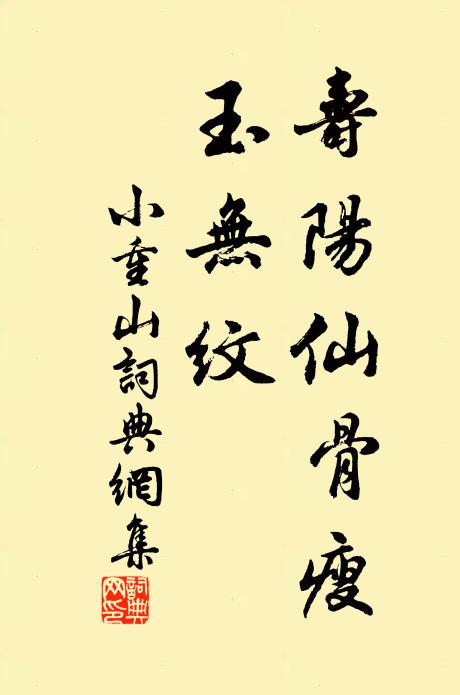 壽陽仙骨瘦
玉無紋
小重山詞典網集
詞典網印